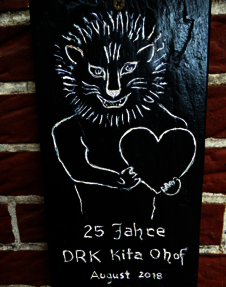 25 Jahre
DRK Kita Ohof
August 2018